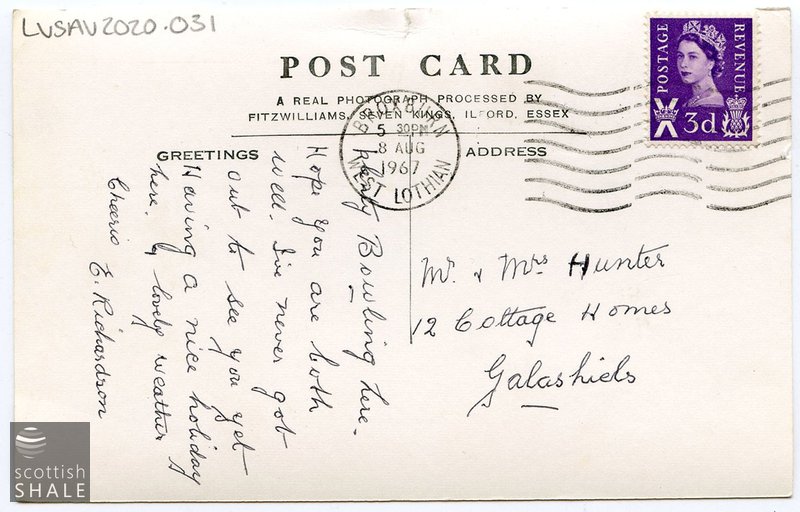 LVSAV2020.031
POST CARD
A REAL PHOTOGRAPH PROCESSED BY
FITZWILLIAMS, SEVEN KINGS, ILFORD, ESSEX
GREETINGS
ADDRESS
BROXBURN
5 30PM
8 AUG
1967
WEST LOTHIAN
POSTAGE
REVENUE
3d
Bowling here.
Hope you are both
well. I've never got
out to see you yet
Having a nice holiday
here. lovely weather
Cheerio E. Richardson
Mr. & Mrs Hunter
12 Cottage Homes
Galashiels
scottish
SHALE